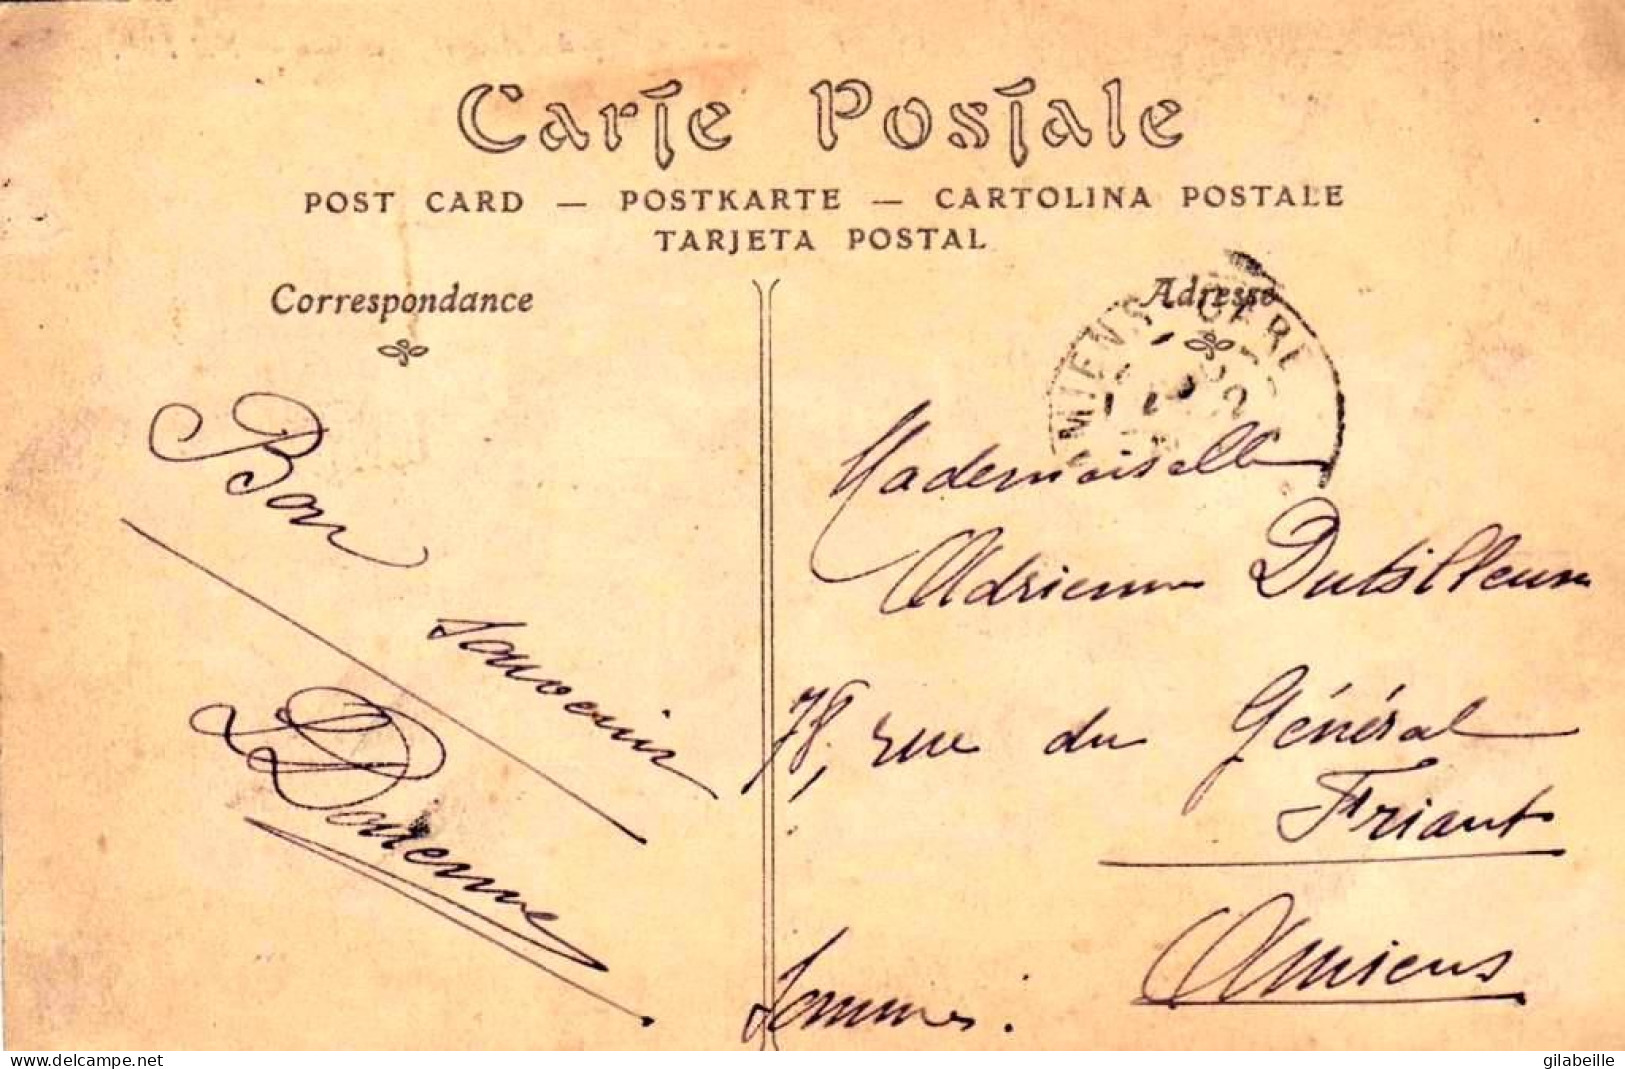 Carte Postale
POST CARD — POSTKARTE — CARTOLINA POSTALE
TARJETA POSTAL
Correspondance
Bon
souvenir
Adresse
Mademoiselle
Adrienne Dutilleux
78, rue du Général
Friant
Amiens
Somme.
delcampe.net
gilabeille